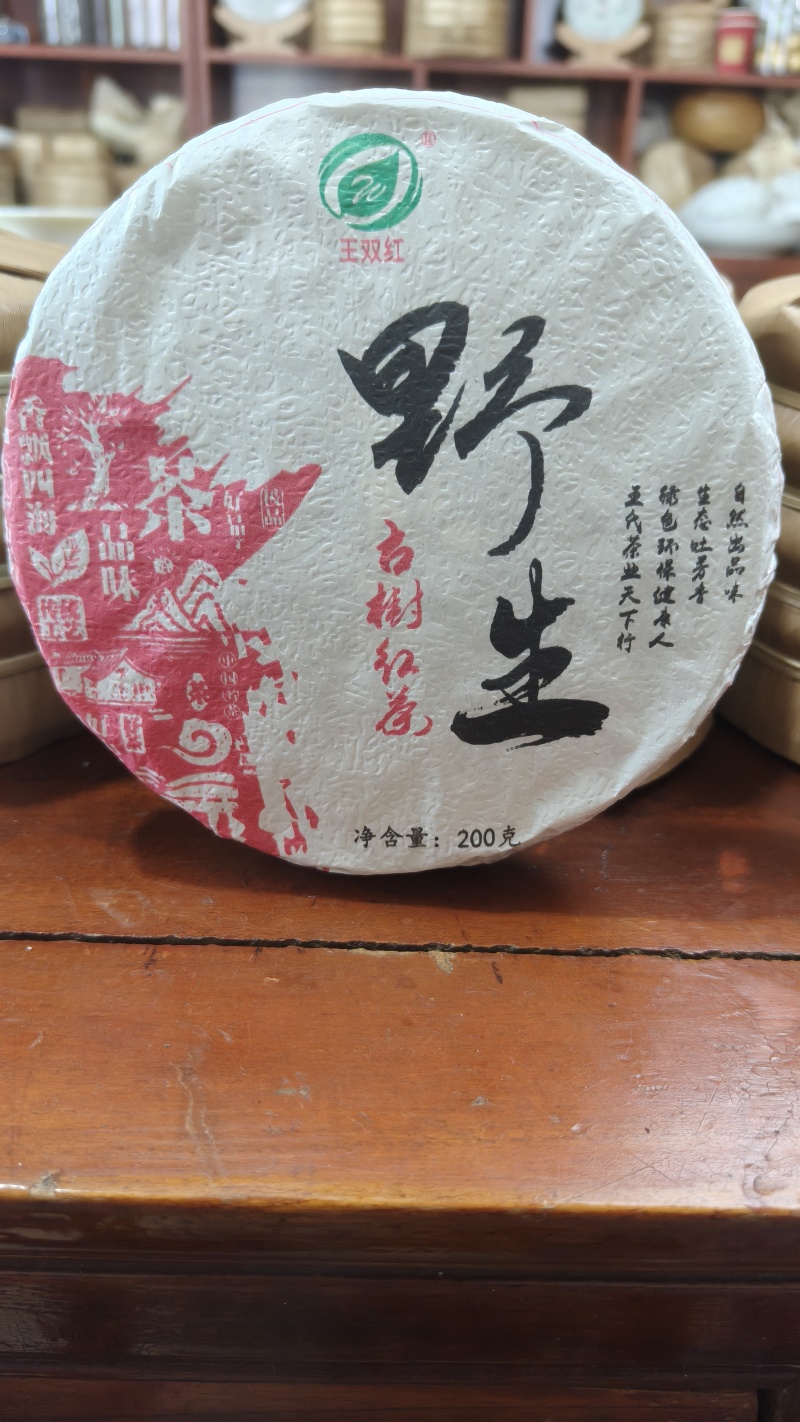 ®
王双红
野生
古樹红茶
自然出品味
生态吐芳香
绿色环保健康人
王氏茶业天下行
香飘四海
茶
品味
净含量：200克